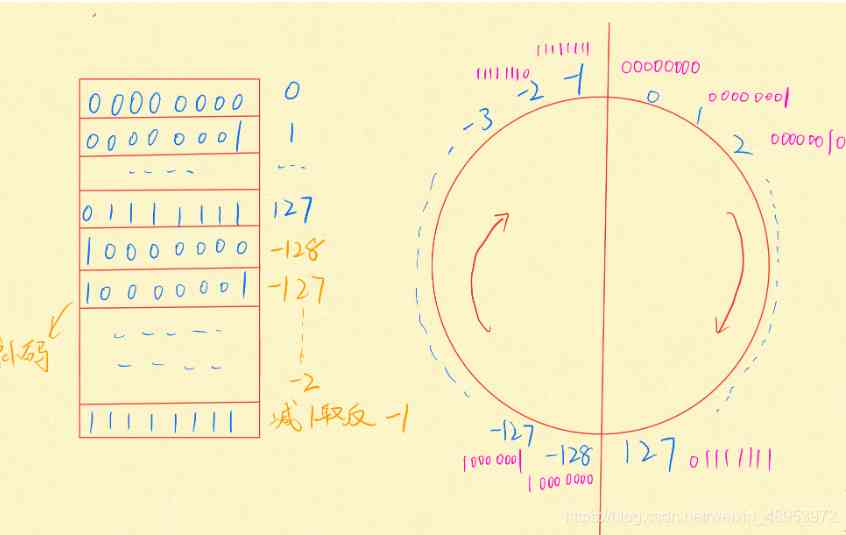 0000 0000 0
0000 0001 1
---- ---
01111111 127
10000000 -128
10000001 -127
补码
-2
11111111 减1取反 -1
11111111
11111110
-3 -2 -1
00000000
0
00000001
1
2 00000010
-127 -128 127
10000001 10000000 01111111
https://blog.csdn.net/weixin_46953972